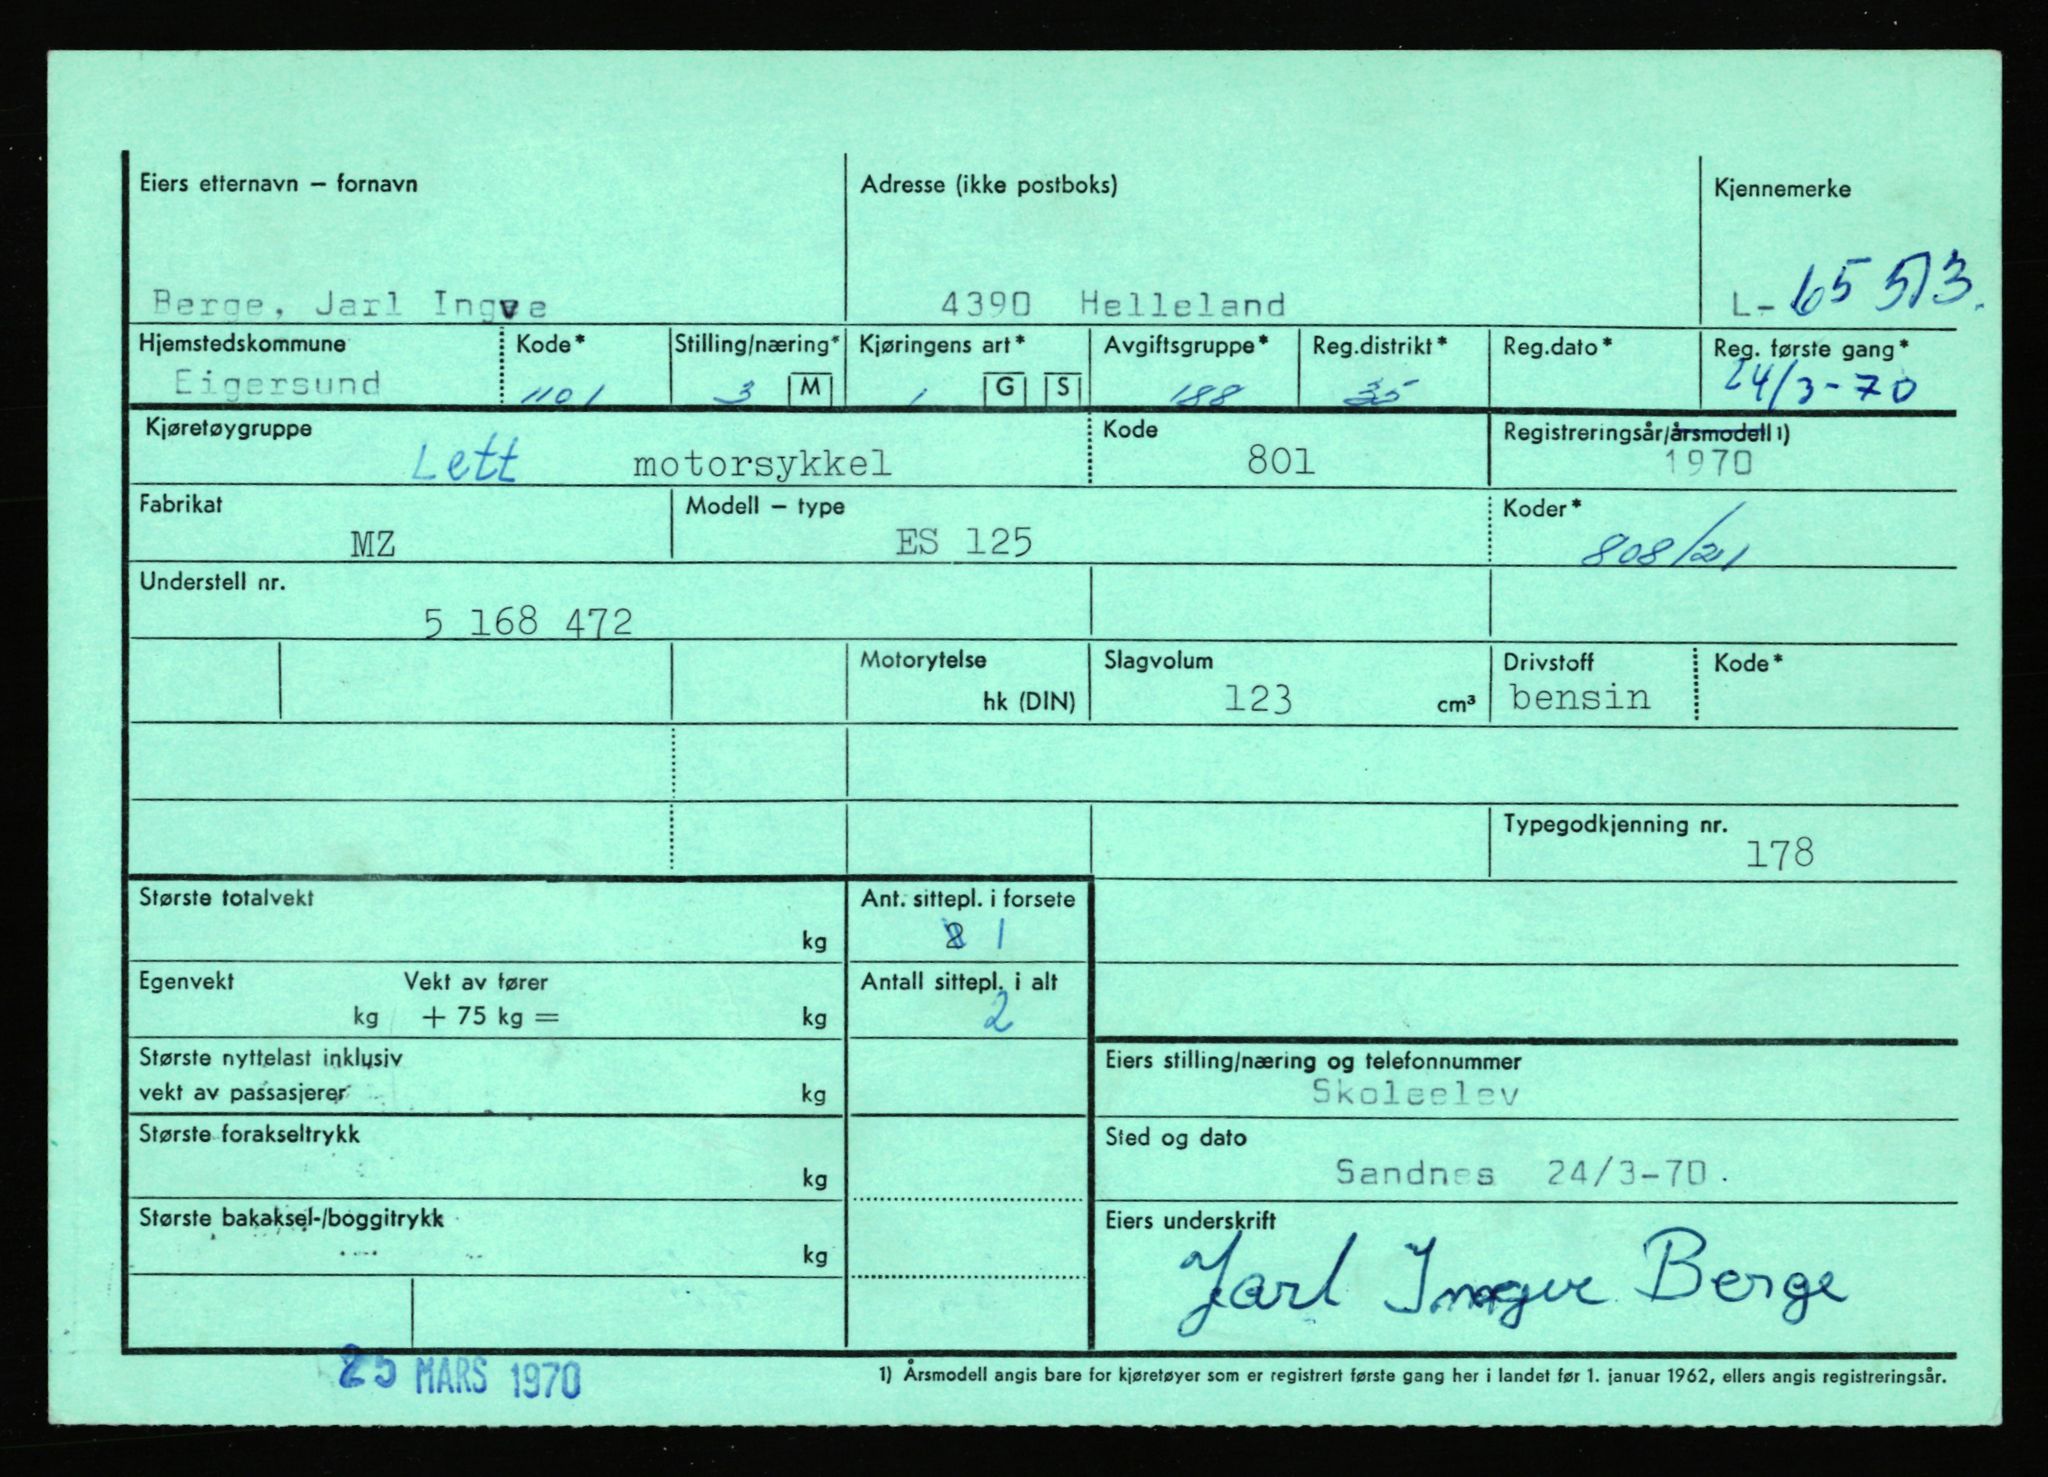 Eiers etternavn – fornavn Adresse (ikke postboks) Kjennemerke
Berge, Jarl Ingve 4390 Helleland L- 65 513.
Hjemstedskommune Kode* Stilling/næring* Kjøringens art* Avgiftsgruppe* Reg.distrikt* Reg.dato* Reg. første gang*
Eigersund 1101 3 M 1 G S 188 35 24/3-70
Kjøretøygruppe Kode Registreringsår/årsmodell 1)
Lett motorsykkel 801 1970
Fabrikat Modell – type Koder*
MZ ES 125 808/21
Understell nr.
5 168 472
Motorytelse Slagvolum Drivstoff Kode*
hk (DIN) 123 cm³ bensin
Typegodkjenning nr.
178
Største totalvekt Ant. sittepl. i forsete
kg 1
Egenvekt Vekt av fører Antall sittepl. i alt
kg + 75 kg = kg 2
Største nyttelast inklusiv Eiers stilling/næring og telefonnummer
vekt av passasjerer kg Skoleelev
Største forakseltrykk Sted og dato
kg Sandnes 24/3-70.
Største bakaksel-/boggitrykk Eiers underskrift
kg Jarl Ingve Berge
25 MARS 1970 1) Årsmodell angis bare for kjøretøyer som er registrert første gang her i landet før 1. januar 1962, ellers angis registreringsår.